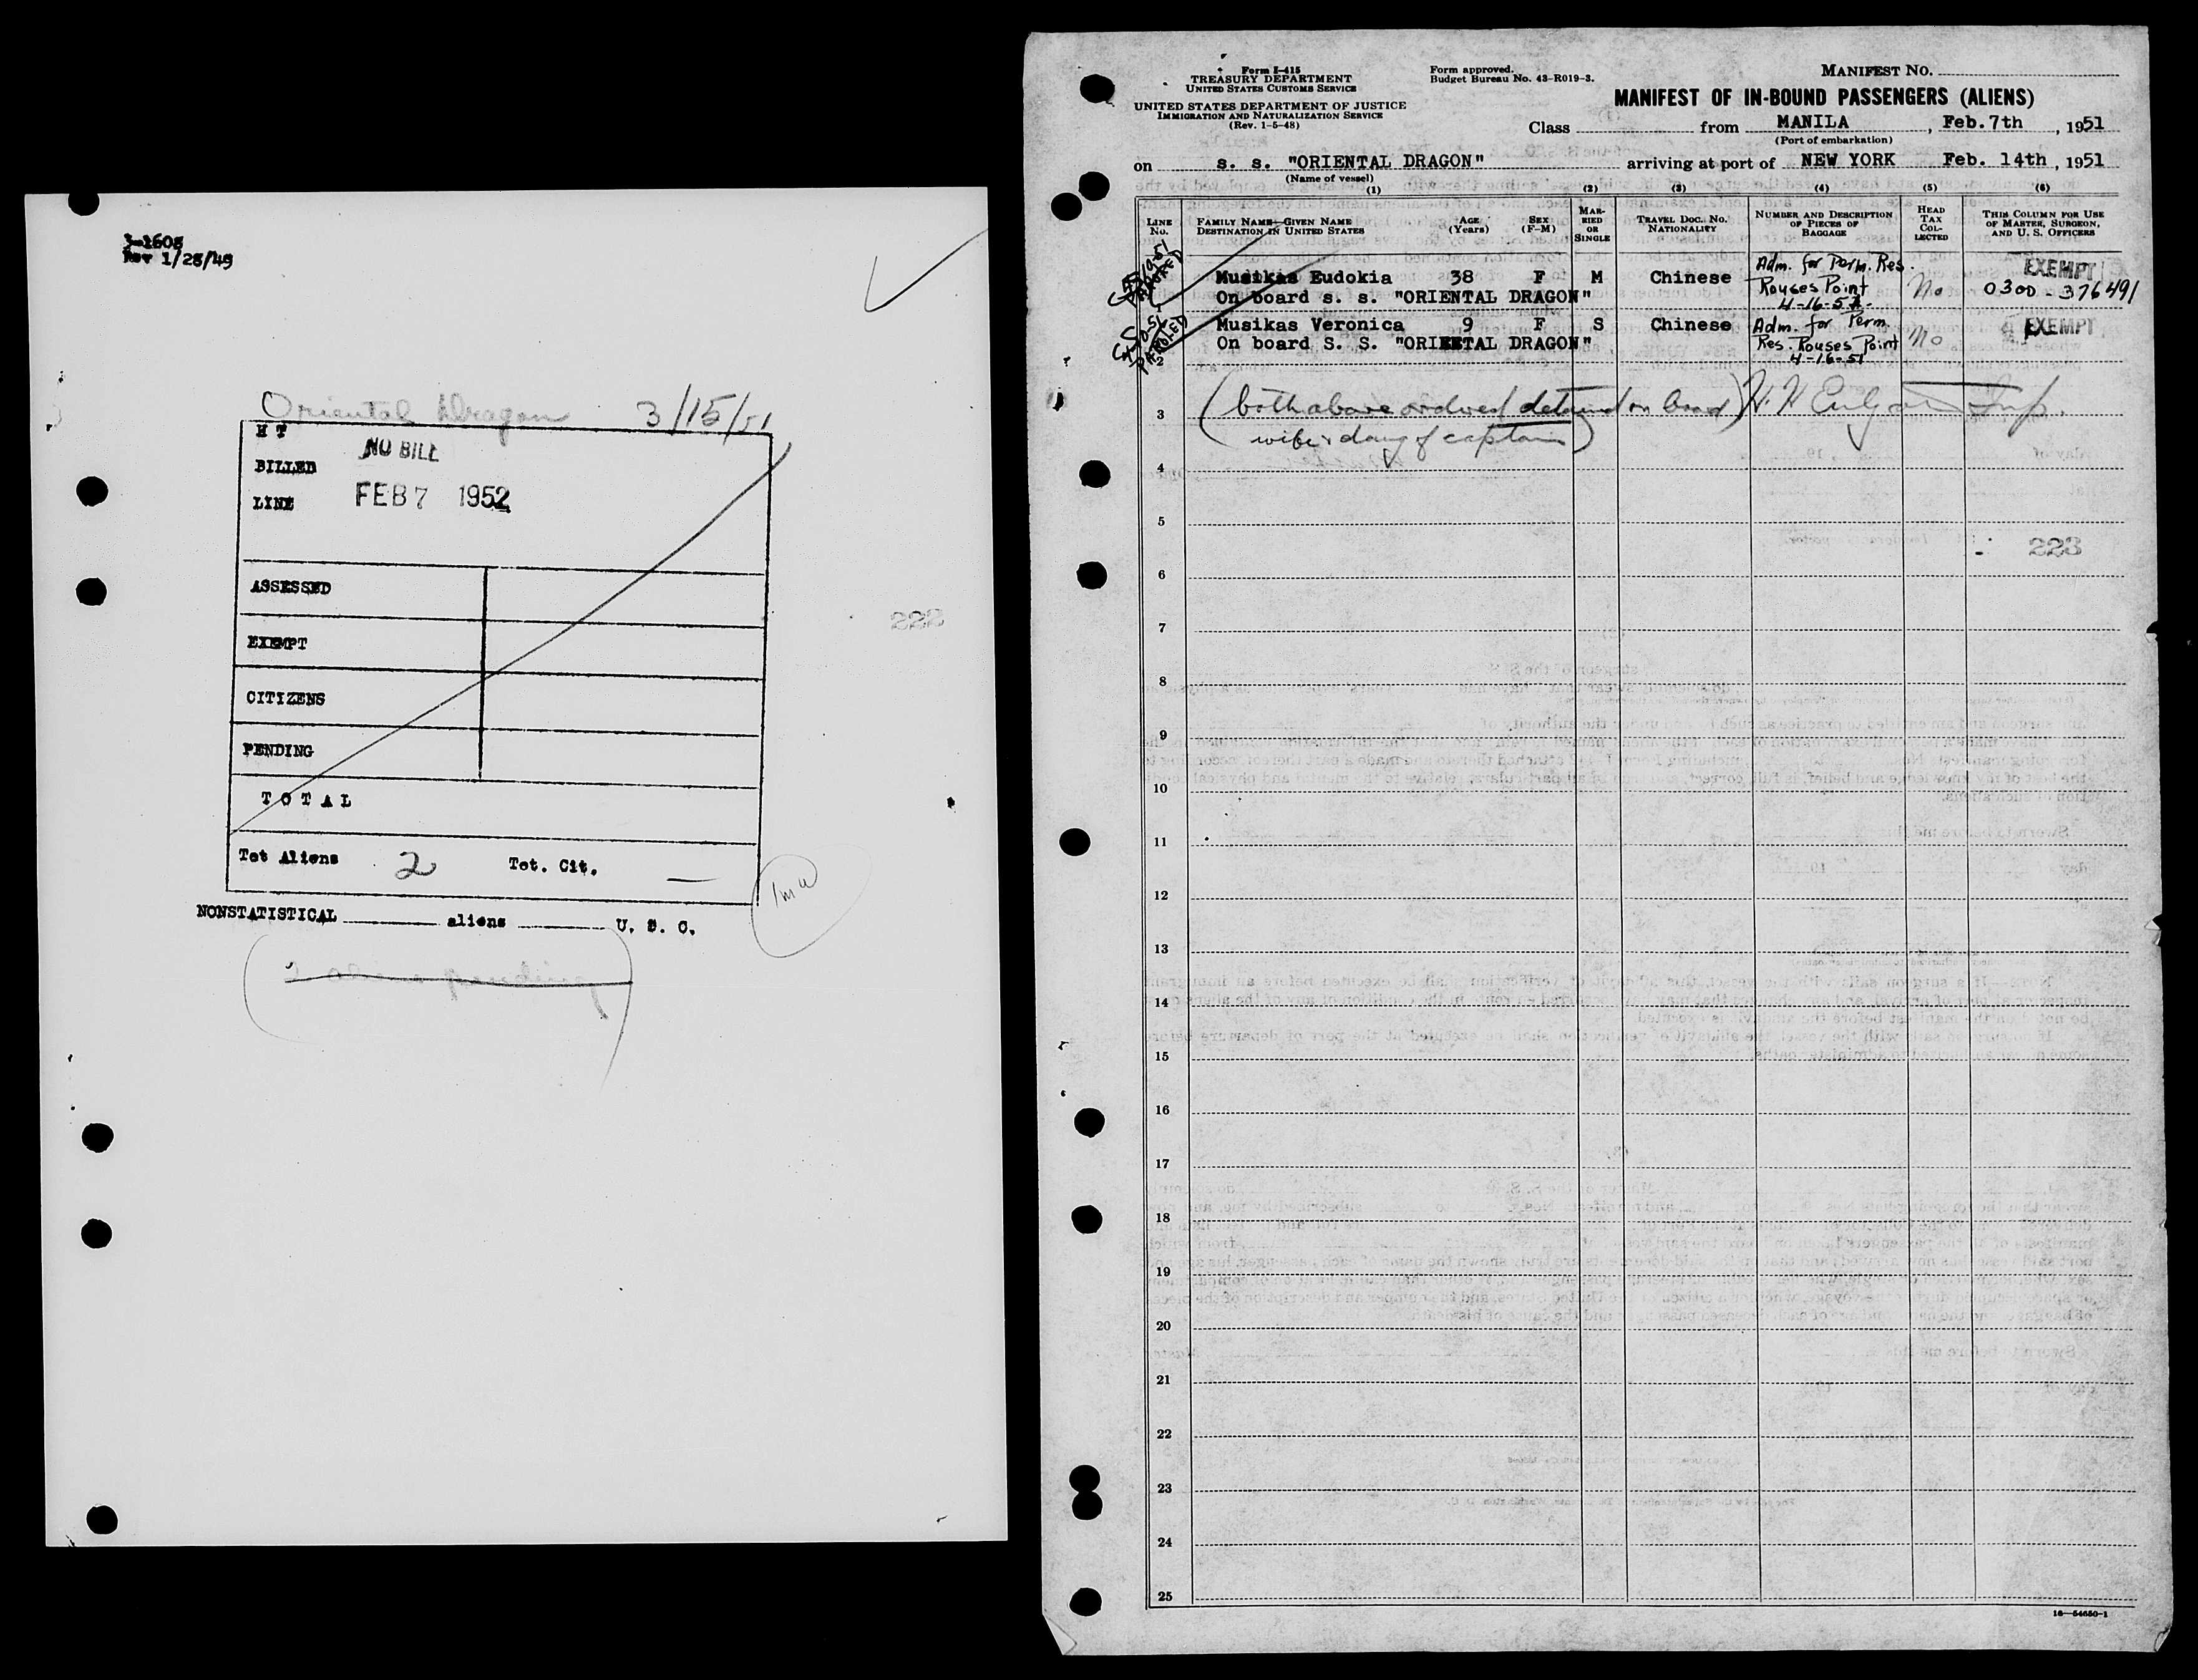 J-1608
Rev 1/28/49
Oriental Dragon 3/15/51
H T
NO BILL
BILLED
LINE FEB 7 1952
ASSESSED
EXEMPT
CITIZENS
PENDING
T O T A L
Tot Aliens 2 Tot. Cit. —
NONSTATISTICAL aliens U. S. C.
223
Form I-415
TREASURY DEPARTMENT
UNITED STATES CUSTOMS SERVICE
UNITED STATES DEPARTMENT OF JUSTICE
IMMIGRATION AND NATURALIZATION SERVICE
(Rev. 1-5-48)
Form approved.
Budget Bureau No. 43-R019-3.
MANIFEST NO.
MANIFEST OF IN-BOUND PASSENGERS (ALIENS)
Class from MANILA, Feb. 7th, 1951
(Port of embarkation)
on s. s. "ORIENTAL DRAGON" arriving at port of NEW YORK Feb. 14th, 1951
(Name of vessel)
(1) (2) (3) (4) (5) (6)
LINE No. FAMILY NAME—GIVEN NAME DESTINATION IN UNITED STATES AGE (Years) SEX (F-M) MARRIED OR SINGLE TRAVEL DOC. NO. NATIONALITY NUMBER AND DESCRIPTION OF PIECES OF BAGGAGE HEAD TAX COLLECTED THIS COLUMN FOR USE OF MASTER, SURGEON, AND U. S. OFFICERS
PAROLED
Musikas Eudokia 38 F M Chinese Adm. for Perm. Res. Rouses Point No EXEMPT
On board s. s. "ORIENTAL DRAGON" 0300-376491
PAROLED
Musikas Veronica 9 F S Chinese Adm. for Perm. Res. Rouses Point 4-16-51 No EXEMPT
On board S. S. "ORIENTAL DRAGON"
2
3 (both above ordered detained on board)
wife & daug of captain)
4
5
223
6
7
8
9
10
11
12
13
14
15
16
17
18
19
20
21
22
23
24
25
16—54650-1